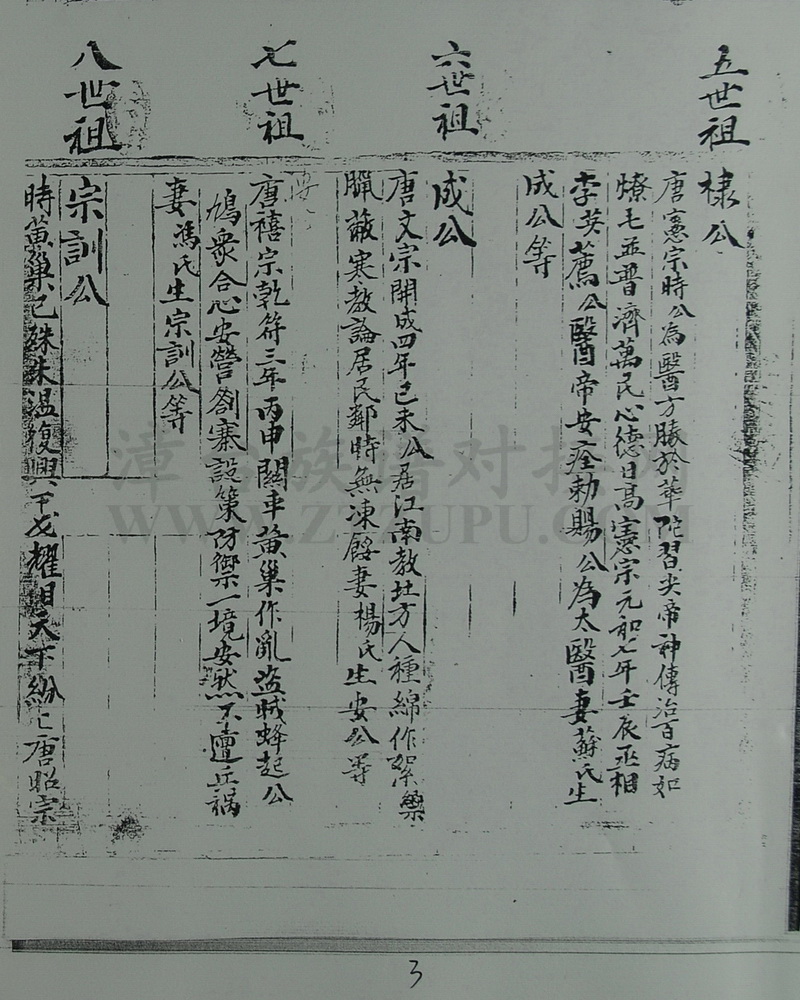 五世祖
棣公
唐憲宗時公為醫方勝於華陀習炎帝神傳治百病如
燎毛並普濟萬民心德日高憲宗元和七年壬辰丞相
李英薦公醫帝安痊勅賜公為太醫妻蘇氏生
成公等
六世祖
成公
唐文宗開成四年己未公居江南教北方人種綿作絮藥
臘蔽寒教論居民鄰時無凍餒妻楊氏生安公等
七世祖
安
唐禧宗乾符三年丙申關平黃巢作亂盜賊蜂起公
鳩衆合心安營劄寨設策防禦一境安然不遭兵禍
妻馮氏生宗訓公等
八世祖
宗訓公
時黃巢已殊朱溫復興干戈耀日天下紛〻唐昭宗
漳州族谱对接网
WWW.ZZZUPU.COM
3